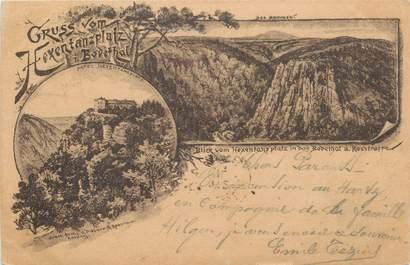 Gruss vom
Hexentanzplatz
i. Bodethal
DER BROCKEN
Blick vom Hexentanzplatz in das Bodethal u. Rosstrappe
Chers Parents
En excursion au Hartz
en Compagnie de la famille
Hilgen, je vous envoie ce Souvenir
Emile